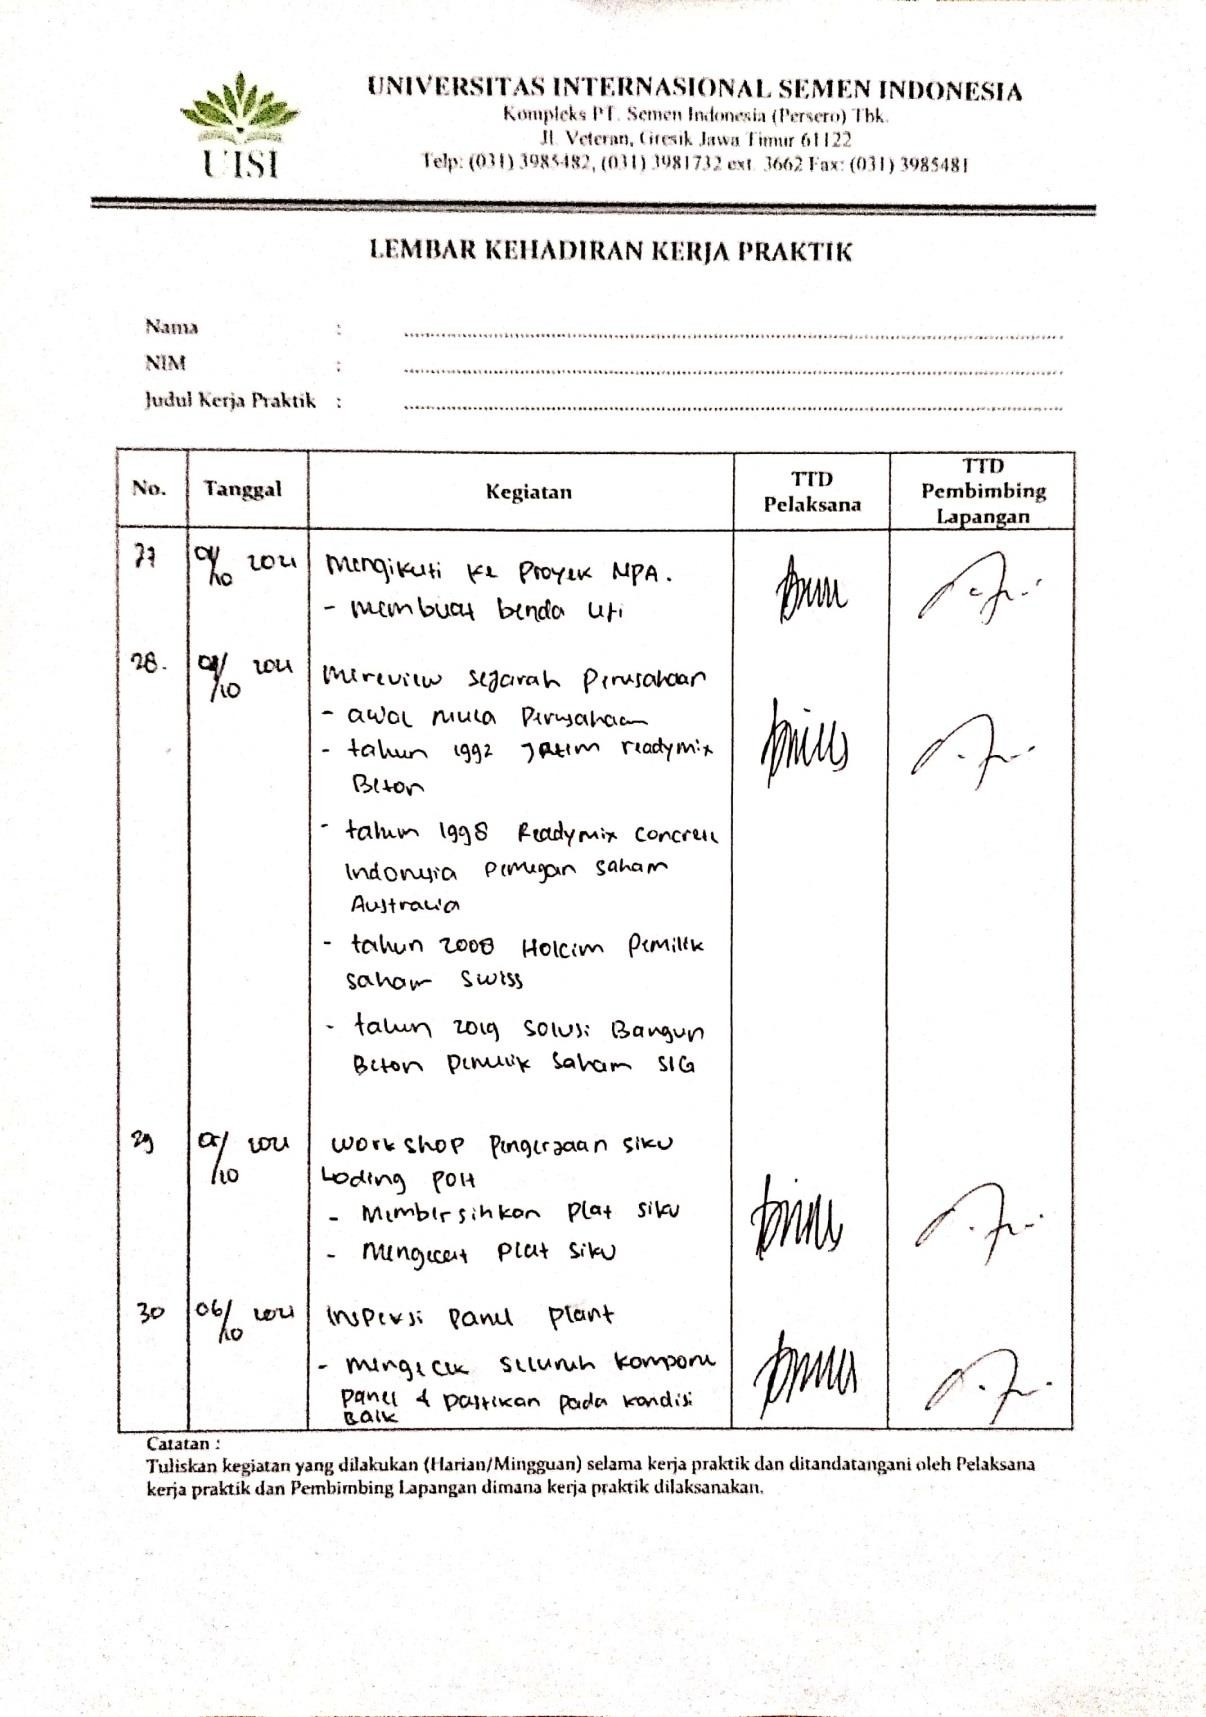 UISI
UNIVERSITAS INTERNASIONAL SEMEN INDONESIA
Kompleks PT. Semen Indonesia (Persero) Tbk.
Jl. Veteran, Gresik Jawa Timur 61122
Telp: (031) 3985482, (031) 3981732 ext. 3662 Fax: (031) 3985481
LEMBAR KEHADIRAN KERJA PRAKTIK
Nama :
NIM :
Judul Kerja Praktik :
No. Tanggal Kegiatan TTD Pelaksana TTD Pembimbing Lapangan
27 /10 2021 Mengikuti ke Proyek MPA.
- membuat benda uji
28. /10 2021 Mereview sejarah Perusahaan
- awal mula Perusahaan
- tahun 1992 Jatim readymix
Beton
- tahun 1998 Readymix concrete
Indonesia Pemegan saham
Australia
- tahun 2008 Holcim Pemilik
saham Swiss
- tahun 2019 Solusi Bangun
Beton Pemilik Saham SIG
29 05/10 2021 Workshop Pengerjaan siku
Loding POH
- Membersihkan plat siku
- Mengecat plat siku
30 06/10 2021 Inspeksi panel plant
- mengecek seluruh kompone
panel & pastikan pada kondisi
Baik
Catatan :
Tuliskan kegiatan yang dilakukan (Harian/Mingguan) selama kerja praktik dan ditandatangani oleh Pelaksana
kerja praktik dan Pembimbing Lapangan dimana kerja praktik dilaksanakan.